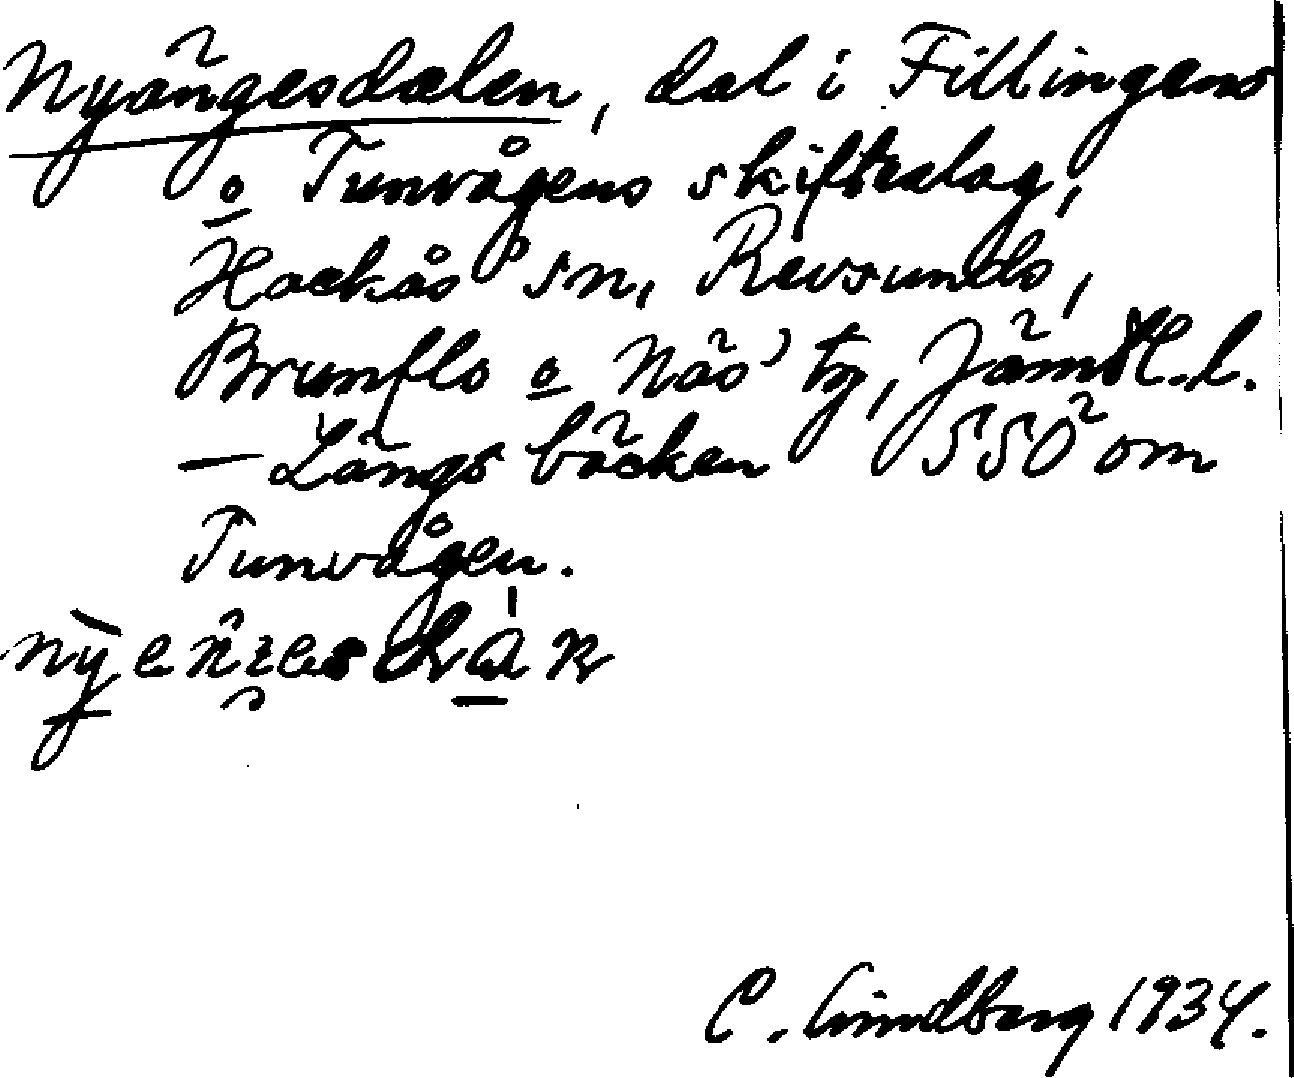 Nyängesdalen, dal i Fillingens
o Tunvågens skifteslag,
Hackås sn, Revsunds,
Brunflo o Näs' tg, Jämtl. l.
— Längs bäcken SSÖ om
Tunvågen.
C. Lindberg 1934.